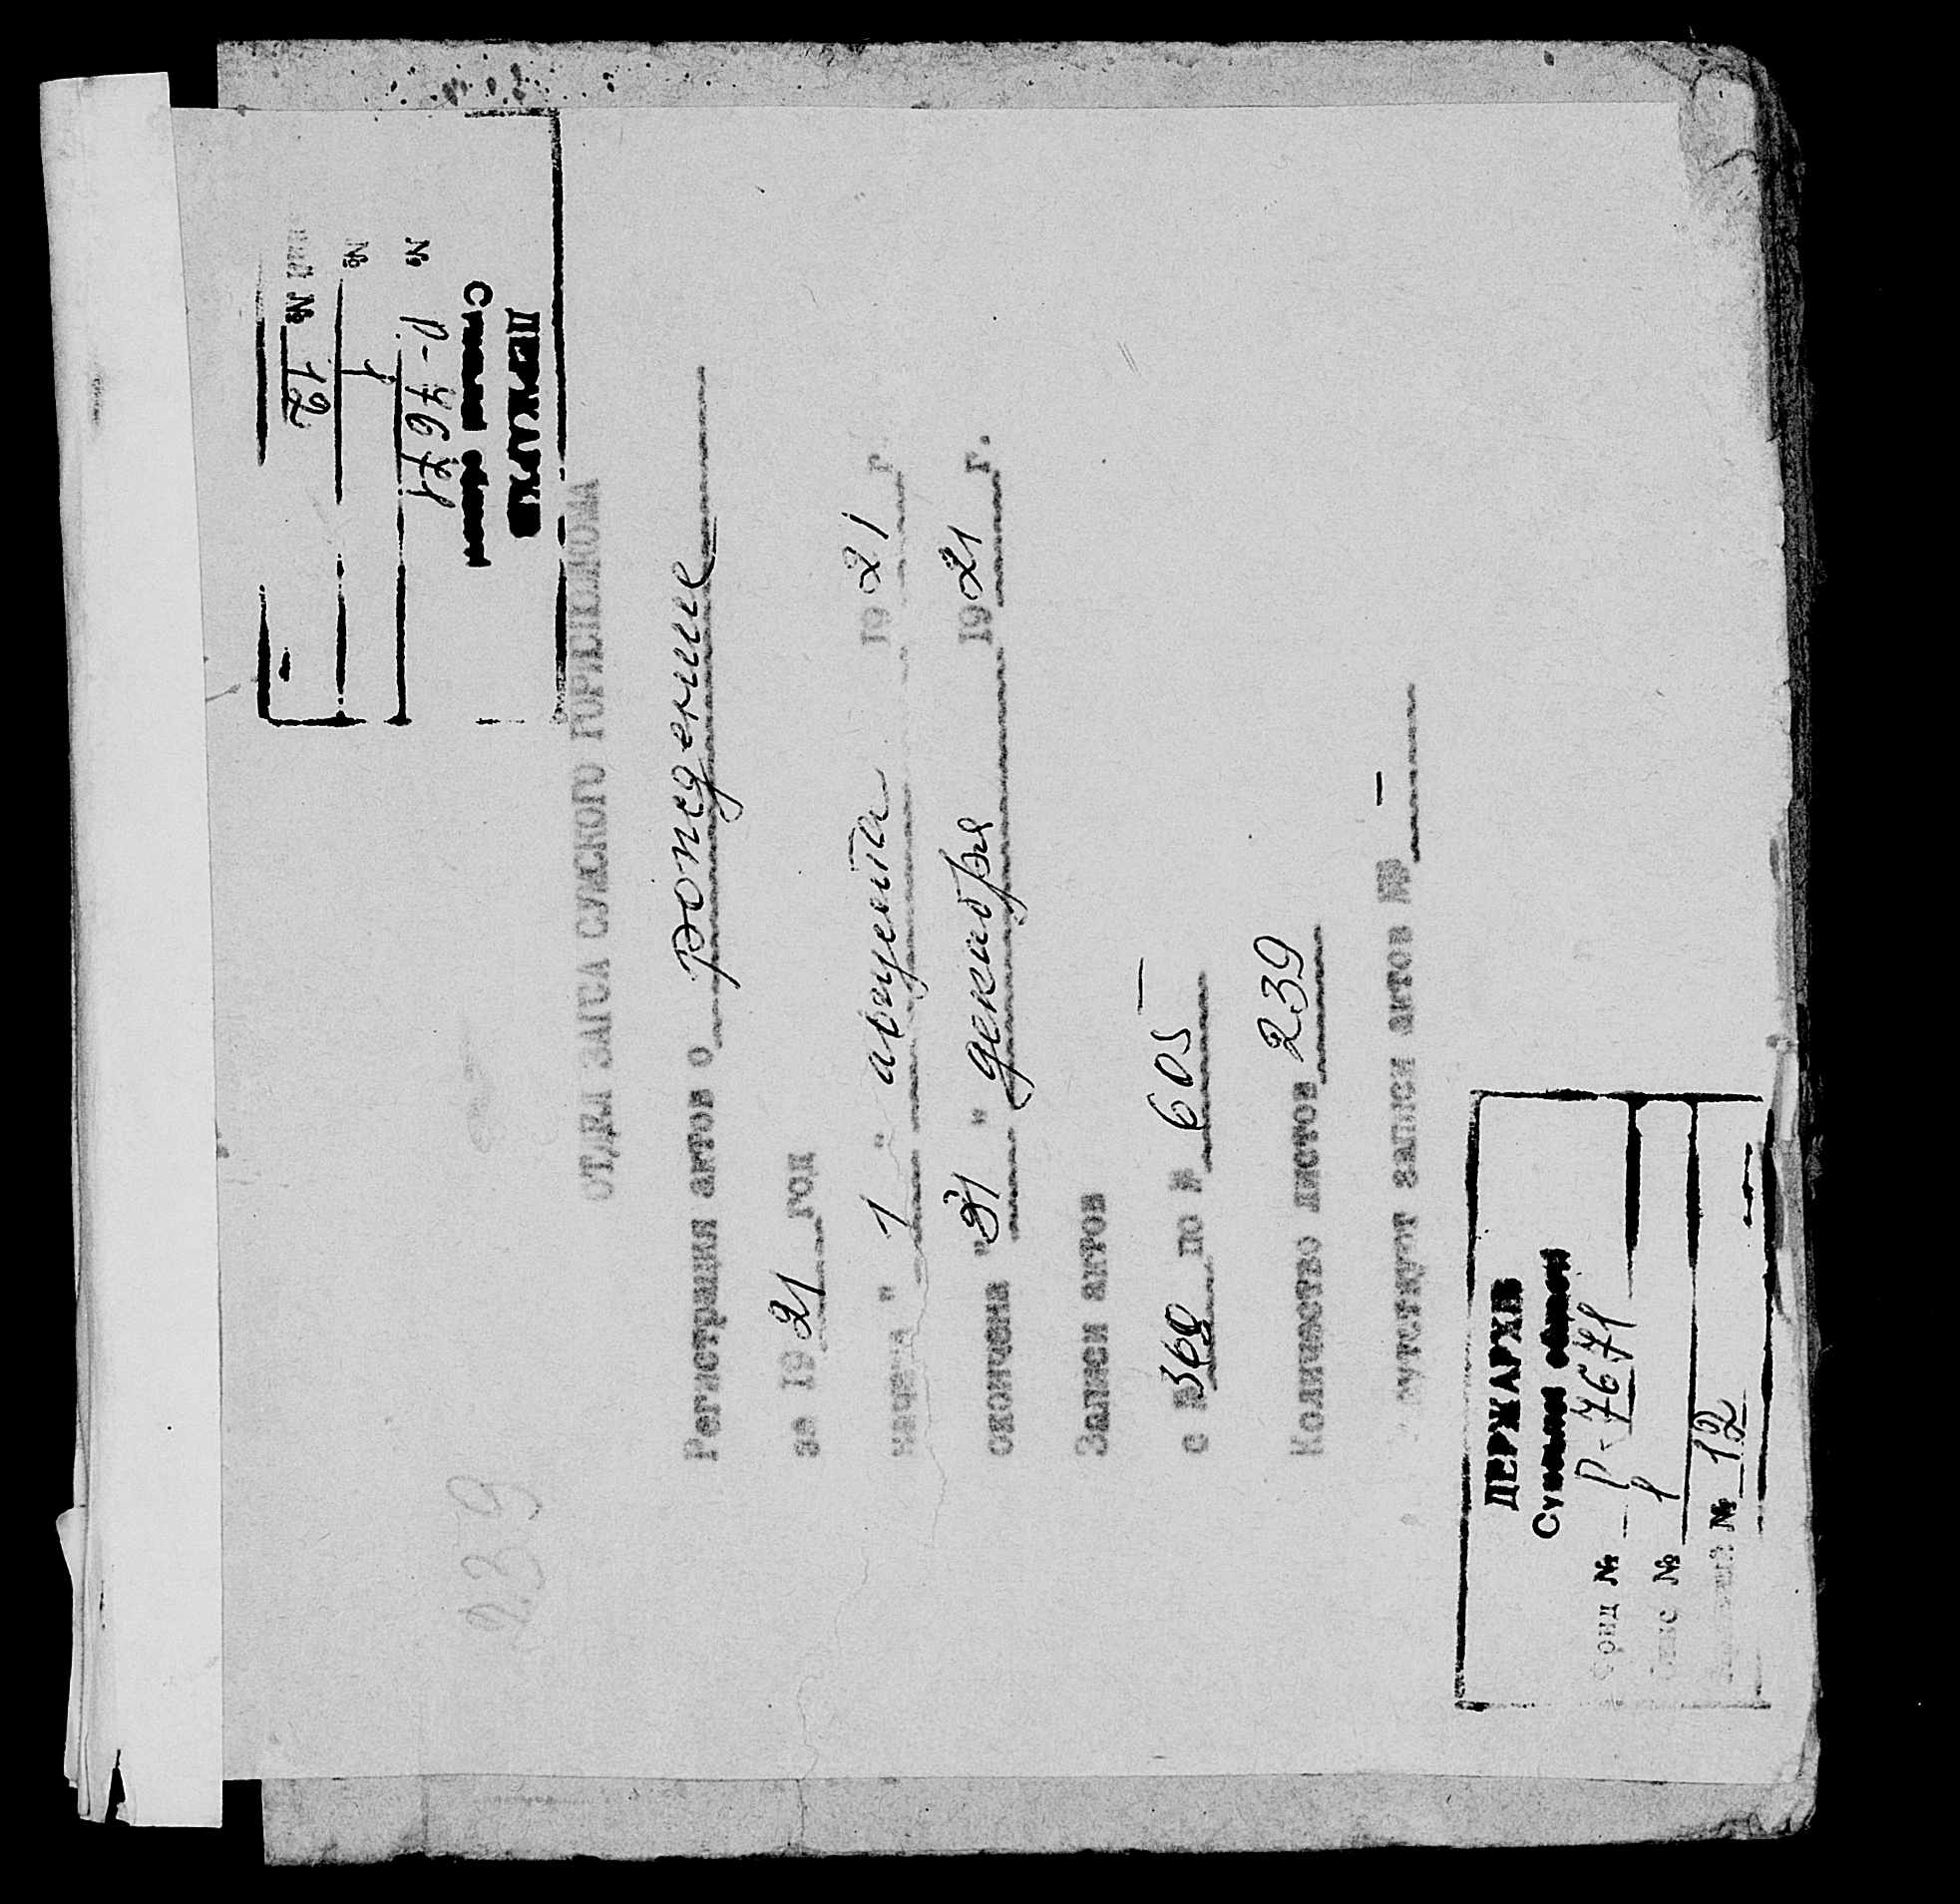 ДЕРЖАРХІВ
Сумської області
№ Р-7671
№ 1
№ 12
ОТДЕЛА ЗАГСА СУМСКОГО ГОРИСПОЛКОМА
Регистрации актов о рождении
за 1921 год
начата "1" августа 1921 г.
окончена "31" декабря 1921 г.
Записи актов
с № 369 по № 605
Количество листов 239
записи актов №№ -
239
ДЕРЖАРХІВ
Сумської області
Фонд № Р-7671
Опис № 1
№ 12